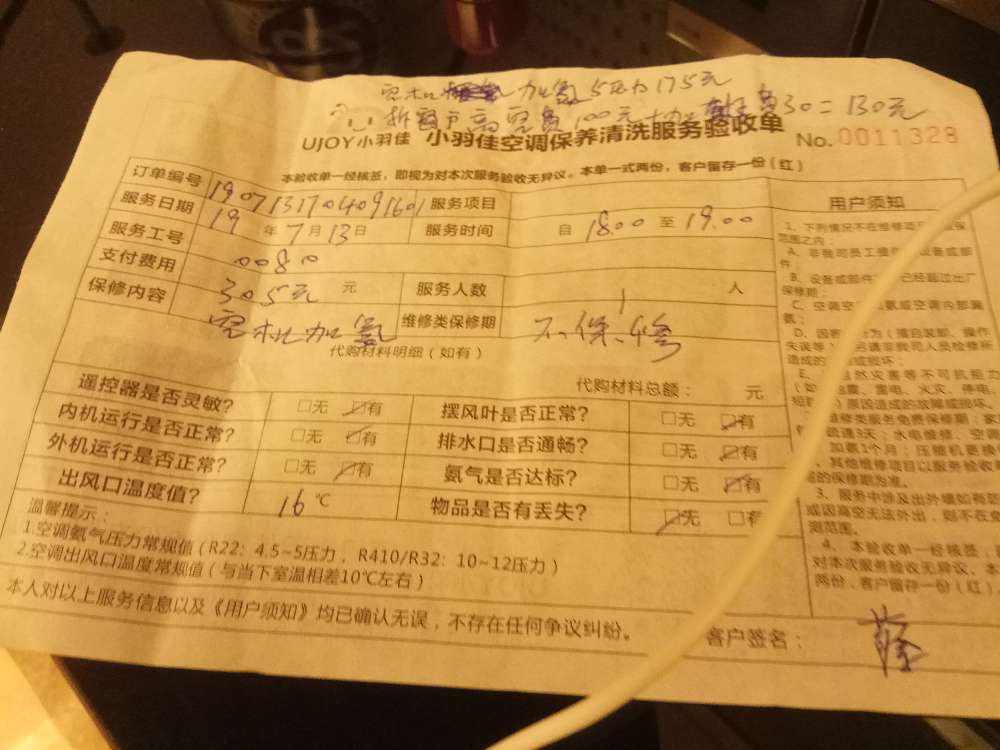 加氨 5压力 175元
拆窗户高 100元 30=130元
UJOY小羽佳 小羽佳空调保养清洗服务验收单 No.0011328
本验收单一经核签，即视为对本次服务验收无异议。本单一式两份，客户留存一份（红）
订单编号 1907131704091601 服务项目
服务日期 19年7月13日 服务时间 自 18.00 至 19.00
服务工号 0080
支付费用 305元 元 服务人数 1 人
保修内容 加氨 维修类保修期 不保修
代购材料明细（如有）
代购材料总额： 元
遥控器是否灵敏？ □无 ☑有 摆风叶是否正常？ □无 ☑有
内机运行是否正常？ □无 ☑有 排水口是否通畅？ □无 ☑有
外机运行是否正常？ □无 ☑有 氨气是否达标？ □无 ☑有
出风口温度值？ 16℃ 物品是否有丢失？ ☑无 □有
温馨提示：
1.空调氨气压力常规值（R22：4.5~5压力，R410/R32：10~12压力）
2.空调出风口温度常规值（与当下室温相差10℃左右）
本人对以上服务信息以及《用户须知》均已确认无误，不存在任何争议纠纷。
客户签名：
用户须知
1、下列情况不在维修
范围之内：
A、非我司员工 设备或部
件
B、设备或部件 已经超过出厂
保修期；
C、空调 氨或空调内部漏
氨；
D、因 为（擅自装卸、操作
失误等 请非我司人员检修所
造成的 或损坏；
E、 自然灾害等不可抗拒力
（如 雷电、火灾、停电、
短 ）原因造成的故障或损坏。
维修类服务免费保修期：
疏通3天；水电维修、空调
加氨1个月；压缩机更换
其他维修项目以服务验收
的保修期为准。
3、服务中涉及出外墙如有
或因高空无法外出，则不在
测范围。
4、本验收单一经核签，
对本次服务验收无异议。本
两份，客户留存一份（红）